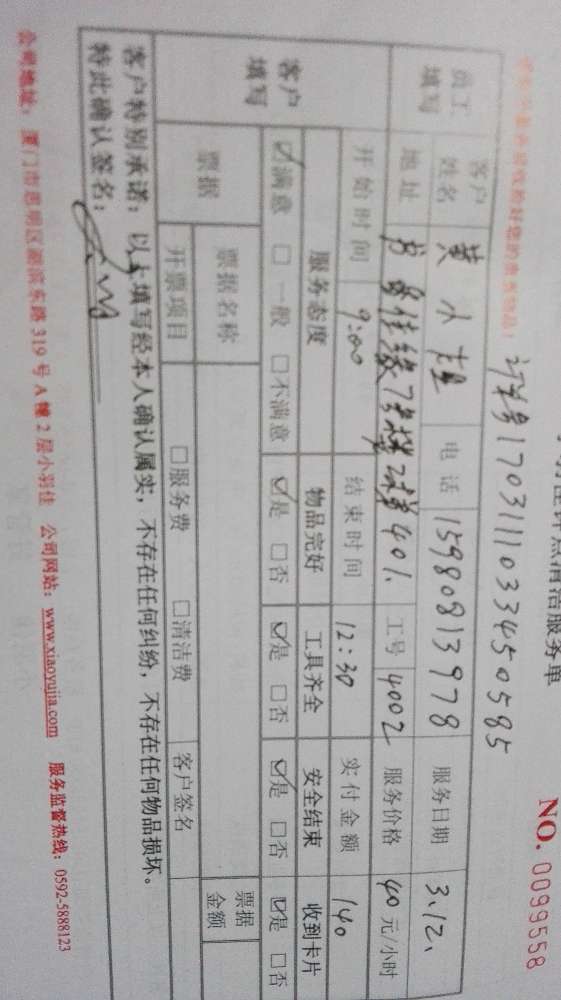 钟点清洁服务单
NO. 0099558
订单号170311110334505 85
员工填写
客户姓名 黄小 电话 15980813978 服务日期 3.12.
地址 佳缘7号楼 401. 工号 4002 服务价格 40 元/小时
开始时间 9:00 结束时间 12:30 实付金额 140
客户填写
服务态度 物品完好 工具齐全 安全结束 收到卡片
☑满意 □一般 □不满意 ☑是 □否 ☑是 □否 ☑是 □否 ☑是 □否
票据 票据名称 票据金额
开票项目 □服务费 □清洁费 客户签名
客户特别承诺：以上填写经本人确认属实；不存在任何纠纷，不存在任何物品损坏。
特此确认签名：
公司地址：厦门市思明区湖滨东路319号A幢2层小羽佳 公司网站：www.xiaoyujia.com 服务监督热线：0592-5888123